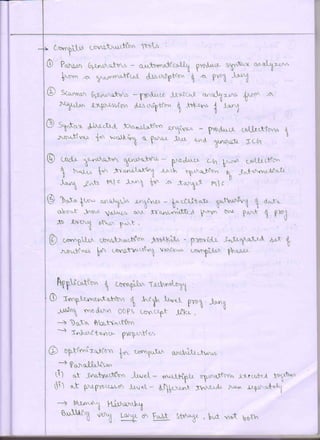 → Compiler construction tools :
① Parser Generators - automatically produce syntax analyzers
from a grammatical description of a prog lang
② Scanner Generators - produce lexical analyzers from a
regular expression description of tokens of lang
③ Syntax directed translation engines - produce collections of
routines for walking a parse tree and generate ICG
④ Code generators generators - produce c.g. from collection
of rules for translating each operation of intermediate
lang into M/C lang for a target M/C
⑤ Data flow analysis engines - facilitate gathering of data
about how values are transmitted from one part of prog
to every other part.
⑥ compiler construction toolkits - provide integrated set of
routines for constructing various compiler phases
Application of compiler Technology
① Implementation of high level prog. lang
using modern OOPS concept like.
→ Data Abstraction
→ Inheritance properties
② optimization for computer architectures
→ Parallelism
(i) at instruction level - multiple operations executed together
(ii) at processor level - different threads run separately
→ Memory Hierarchy
Building very Large or Fast storage, but not both